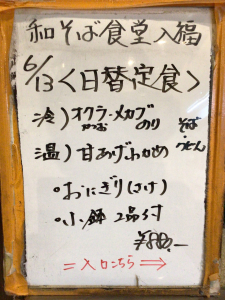 和そば食堂入福
6/13<日替定食>
冷)オクラ・メカブ
かつお のり
そば
・うどん
温)甘あげわかめ
・おにぎり(さけ)
・小鉢 2品付
¥880.-
=入口こちら⇒